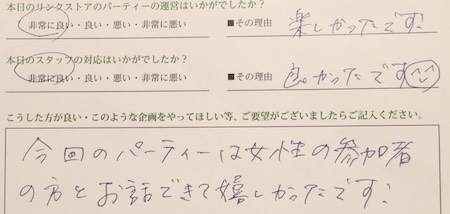 本日のリンクストアのパーティーの運営はいかがでしたか?
非常に良い・良い・悪い・非常に悪い ■その理由 楽しかったです!
本日のスタッフの対応はいかがでしたか?
非常に良い・良い・悪い・非常に悪い ■その理由 良かったです
こうした方が良い・このような企画をやってほしい等、ご要望がございましたらご記入ください。
今回のパーティーは女性の参加者
の方とお話できて嬉しかったです!